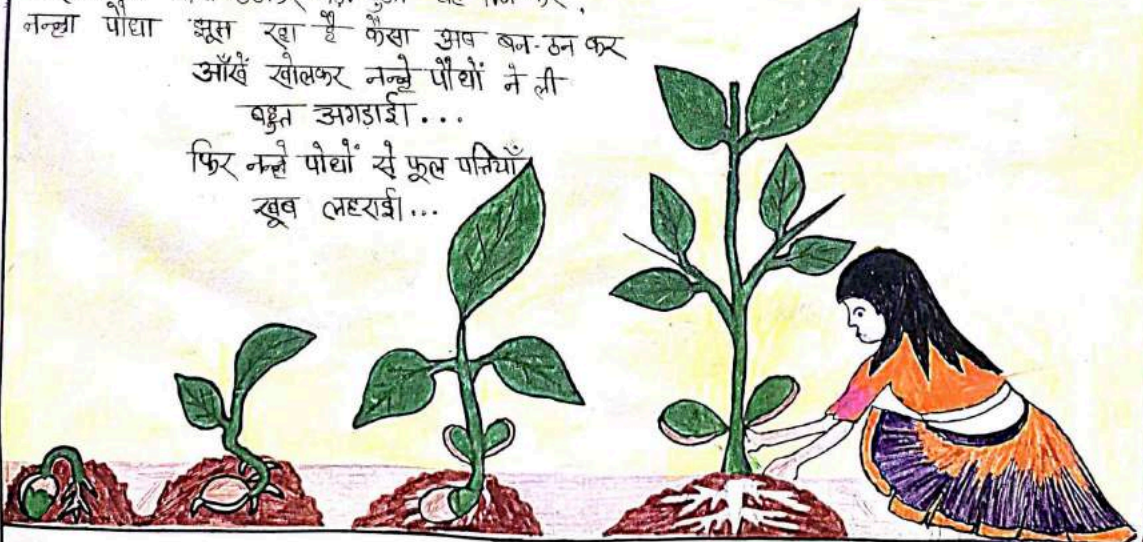 नन्हा पौधा झूम रहा है कैसा अब बन-ठन कर
आँखें खोलकर नन्हे पौधों ने ली
बहुत अगड़ाई...
फिर नन्हे पोधों से फूल पत्तियाँ
खूब लहराई...